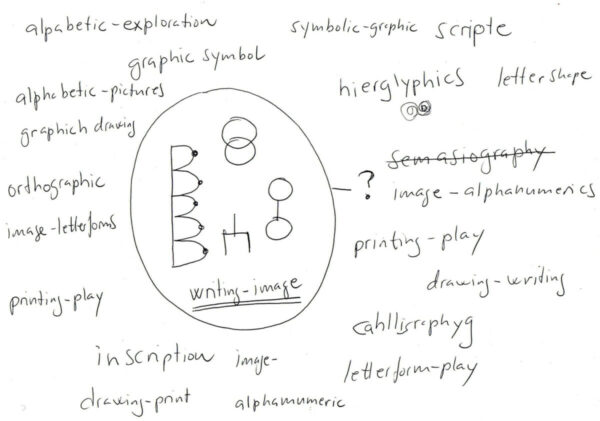 alpabetic-exploration
symbolic-graphic
scripte
graphic symbol
hierglyphics
lettershape
alphabetic-pictures
graphich drawing
semasiography
orthographic
?
image-alphanumerics
image-letterforms
printing-play
drawing-writing
writing-image
printing-play
inscription
image-
letterform-play
drawing-print
alphamumeric